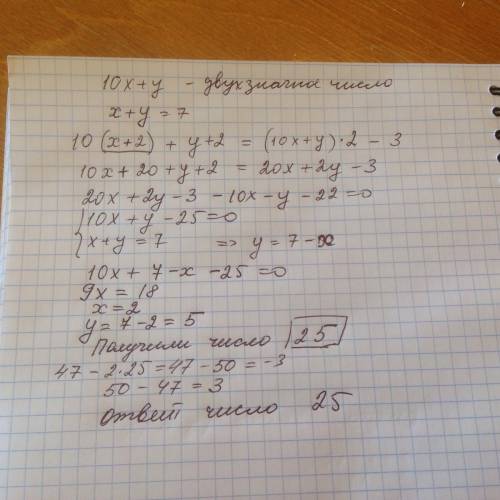 10x+y - двухзначное число
x+y=7
10(x+2) + y+2 = (10x+y)·2 - 3
10x+20+y+2 = 20x+2y-3
20x+2y-3 -10x-y-22=0
{10x+y-25=0
{x+y=7 => y=7-x
10x+7-x-25=0
9x=18
x=2
y=7-2=5
Получили число 25
47-2·25=47-50=-3
50-47=3
ответ число 25